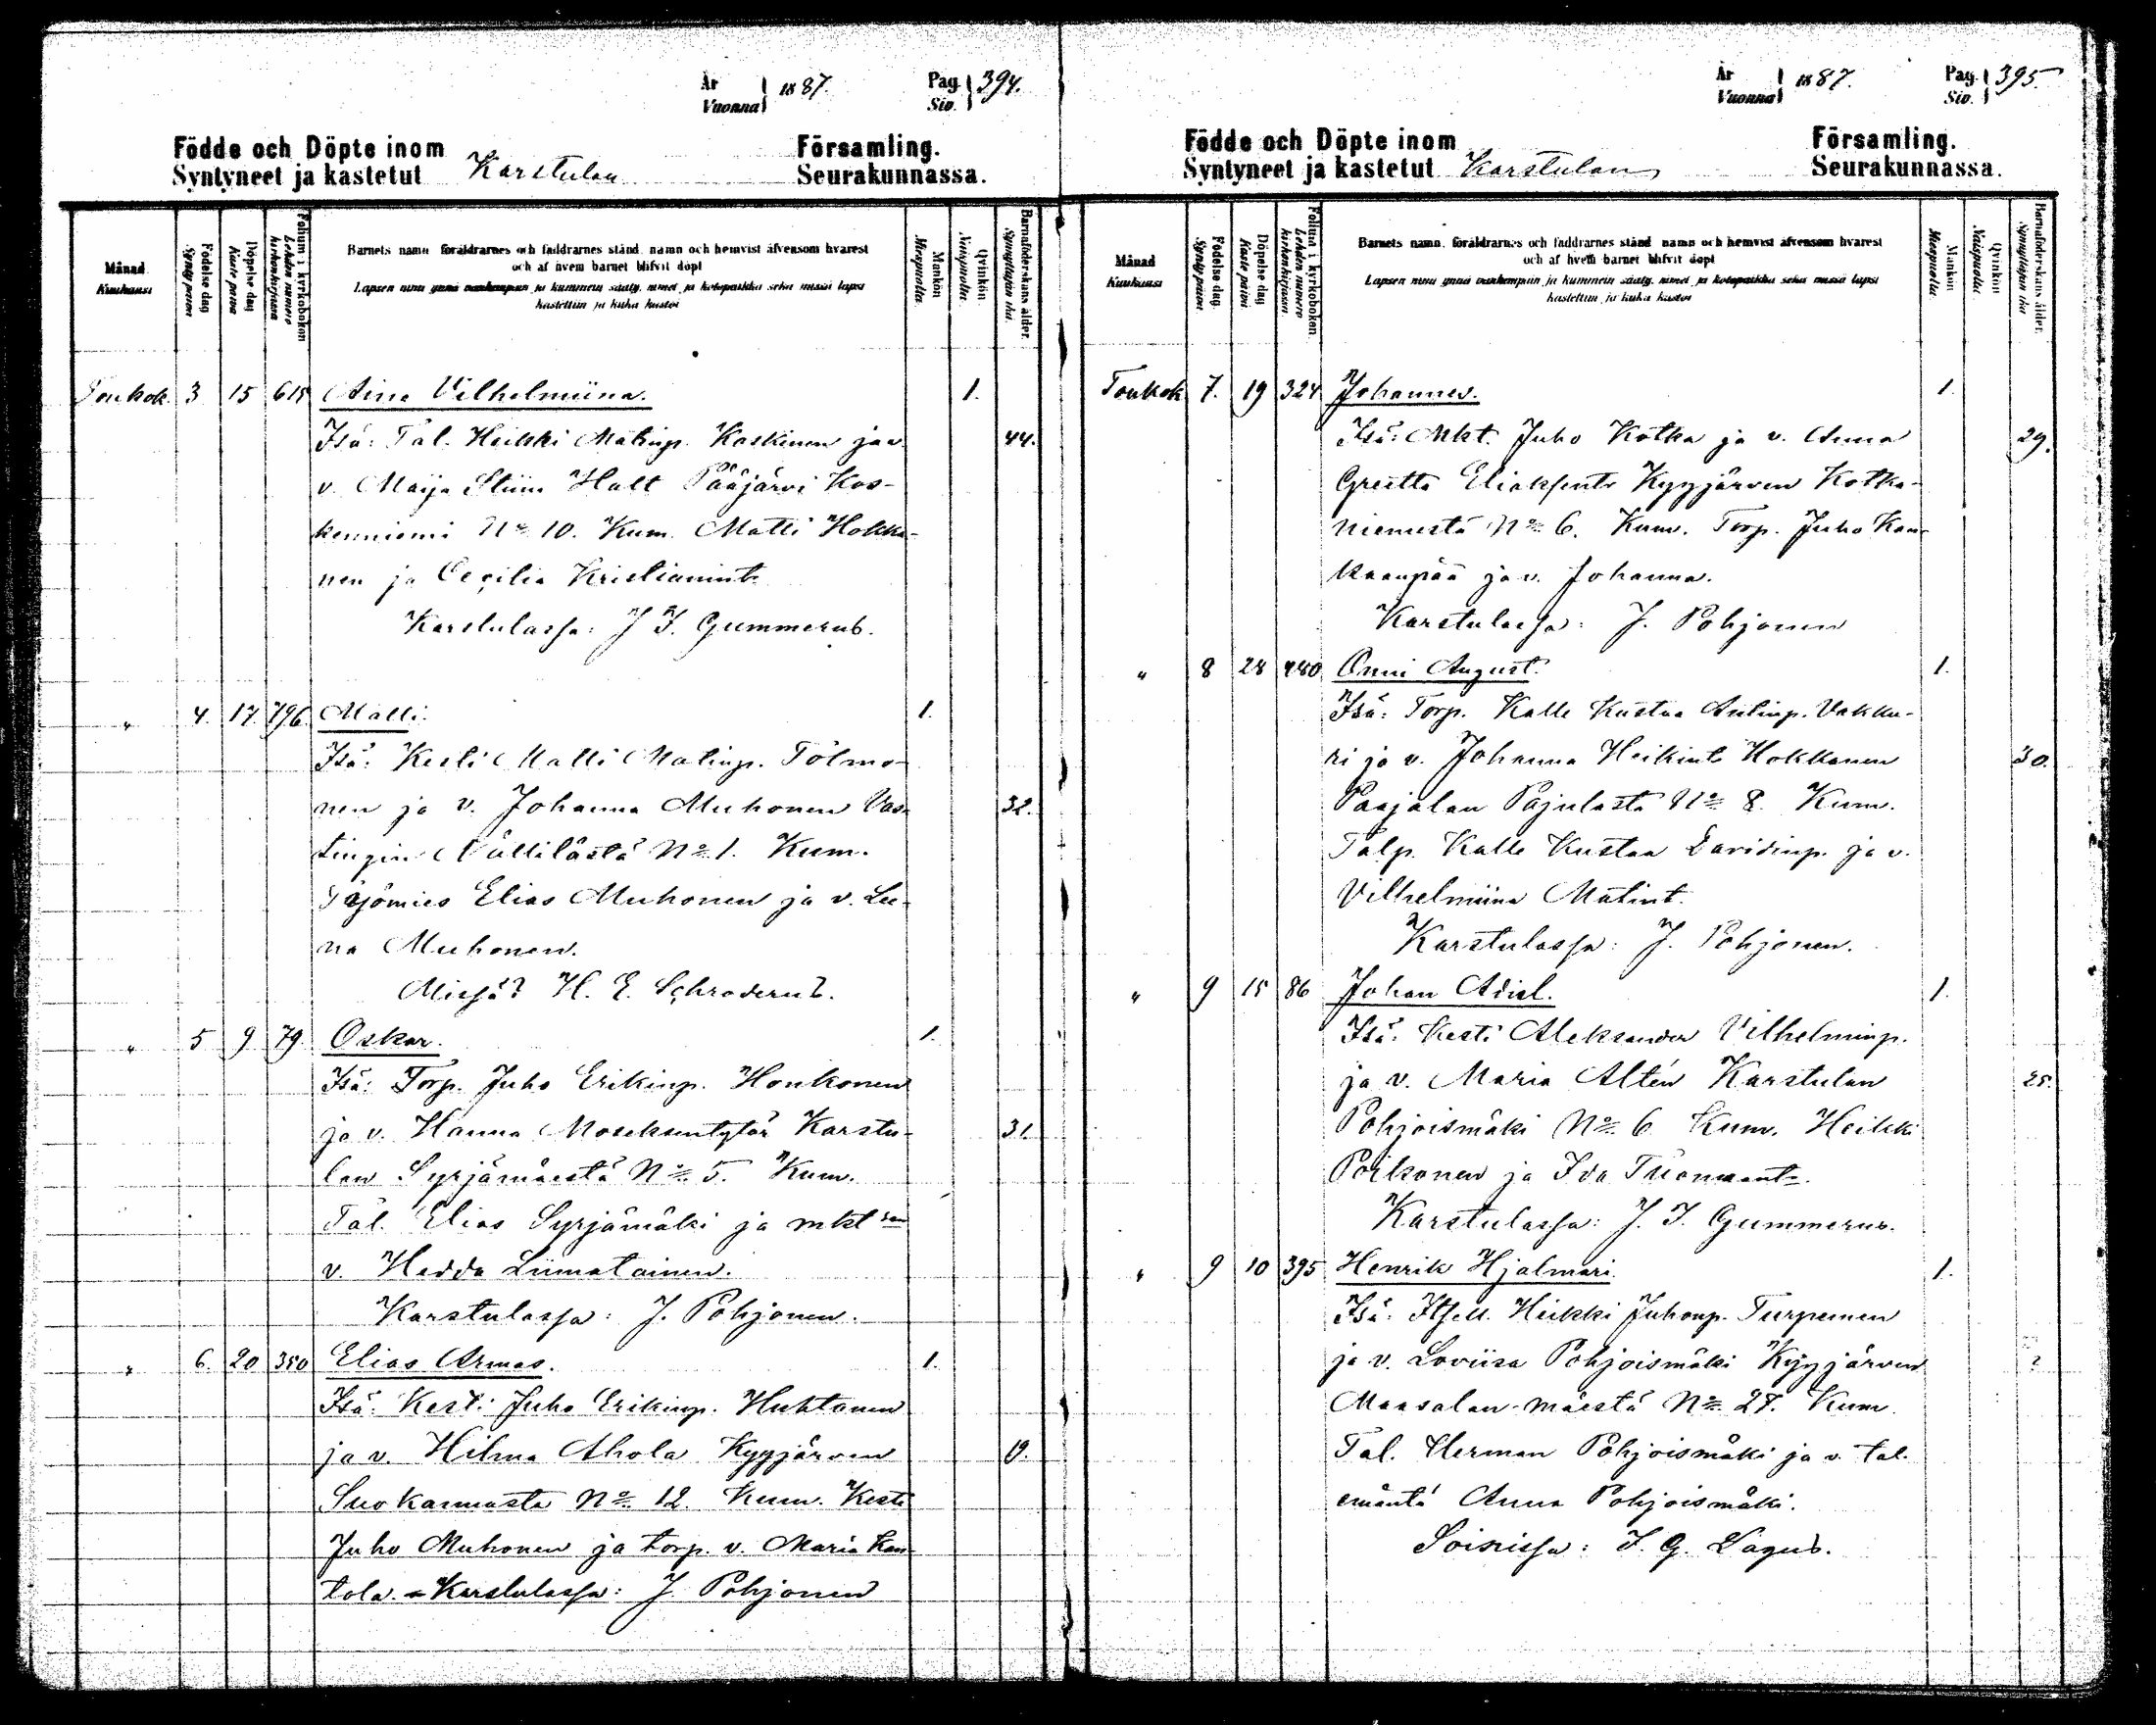 År
Vuonna 1887. Pag. Siv. 394.
Födde och Döpte inom Karstulan Församling.
Syntyneet ja kastetut Seurakunnassa.
Månad Kuukausi
Födelse dag Synty päivä
Döpelse dag Kaste päivä
Folium i kyrkoboken Lehden numero kirkonkirjassa
Barnets namn föräldrarnes och faddrarnes stånd, namn och hemvist äfvensom hvarest
och af hvem barnet blifvit döpt
Lapsen nimi ynnä vanhempain ja kummein sääty, nimet ja kotopaikka sekä missä lapsi
kastettiin ja kuka kastoi
Mankön Miespuolia.
Qvinkön Naispuolia.
Barnaföderskans ålder. Synnyttäjän ikä.
Toukok. 3 15 615 Aina Vilhelmiina. 1.
Isä: Tal. Heikki Matinp. Koskinen ja 44.
v. Maija Stiina Halt Pääjärvi Kos-
kenniemi No 10. Kum. Matti Hokka-
nen ja Cecilia Kristianint.
Karstulassa: J I. Gummerus.
" 4. 17. 796 Matti. 1.
Isä: Kesti Matti Matinp. Tölmö-
nen ja v. Johanna Muhonen Vas- 32.
tingin Nällilästä No 1. Kum.
Työmies Elias Muhonen ja v. Lee-
na Muhonen.
Missä? H. E. Schroderus.
" 5 9 79. Oskar. 1.
Isä: Torp. Juho Erikinp. Honkonen
ja v. Hanna Moseksentytär Karstu- 31.
lan Syrjämäestä No 5. Kum.
Tal. Elias Syrjämäki ja mkt san
v. Hedda Liimatainen.
Karstulassa: J. Pohjonen.
" 6. 20 350 Elias Armas. 1.
Isä: Kesti Juho Erikinp. Huhtanen
ja v. Hilma Ahola Kyyjärven 19.
Suokannasta No 12. Kum. Kesti
Juho Muhonen ja torp. v. Maria Kan-
tola. Karstulassa: J. Pohjonen
År
Vuonna 1887. Pag. Siv. 395.
Födde och Döpte inom Karstulan Församling.
Syntyneet ja kastetut Seurakunnassa.
Månad Kuukausi
Födelse dag Synty päivä
Döpelse dag Kaste päivä
Folium i kyrkoboken Lehden numero kirkonkirjassa
Barnets namn, föräldrarnes och faddrarnes stånd namn och hemvist äfvensom hvarest
och af hvem barnet blifvit döpt
Lapsen nimi ynnä vanhempain ja kummein sääty, nimet ja kotopaikka sekä missä lapsi
kastettiin ja kuka kastoi
Mankön Miespuolia
Qvinkön Naispuolia
Barnaföderskans ålder. Synnyttäjän ikä
Toukok 7. 19 324 Johannes. 1.
Isä: Mkt. Juho Kotka ja v. Anna 29.
Greetta Eliaksent Kyyjärven Kotka-
niemestä No 6. Kum. Torp. Juho Kan-
kaanpää ja v. Johanna.
Karstulassa: J. Pohjonen
" 8 28 480 Onni August. 1.
Isä: Torp. Kalle Kustaa Antinp. Vakku-
ri ja v. Johanna Heikint Hokkanen 30.
Paajalan Pajulasta No 8. Kum.
Talp. Kalle Kustaa Davidinp. ja v.
Vilhelmiina Matint.
Karstulassa: J. Pohjonen.
" 9 15 86 Johan Adiel. 1.
Isä: Kesti Aleksander Vilhelminp.
ja v. Maria Altén Karstulan 25.
Pohjoismäki No 6 Kum. Heikki
Poikonen ja Ida Tuomaant.
Karstulassa: J. I. Gummerus.
" 9 10 395 Henrik Hjalmari. 1.
Isä: Itsell. Heikki Juhonp. Turpeinen
ja v. Loviisa Pohjoismäki Kyyjärven ?
Maasalan-mäestä No 27. Kum.
Tal. Herman Pohjoismäki ja v. tal.
emäntä Anna Pohjoismäki.
Soinissa: J. G. Lagus.